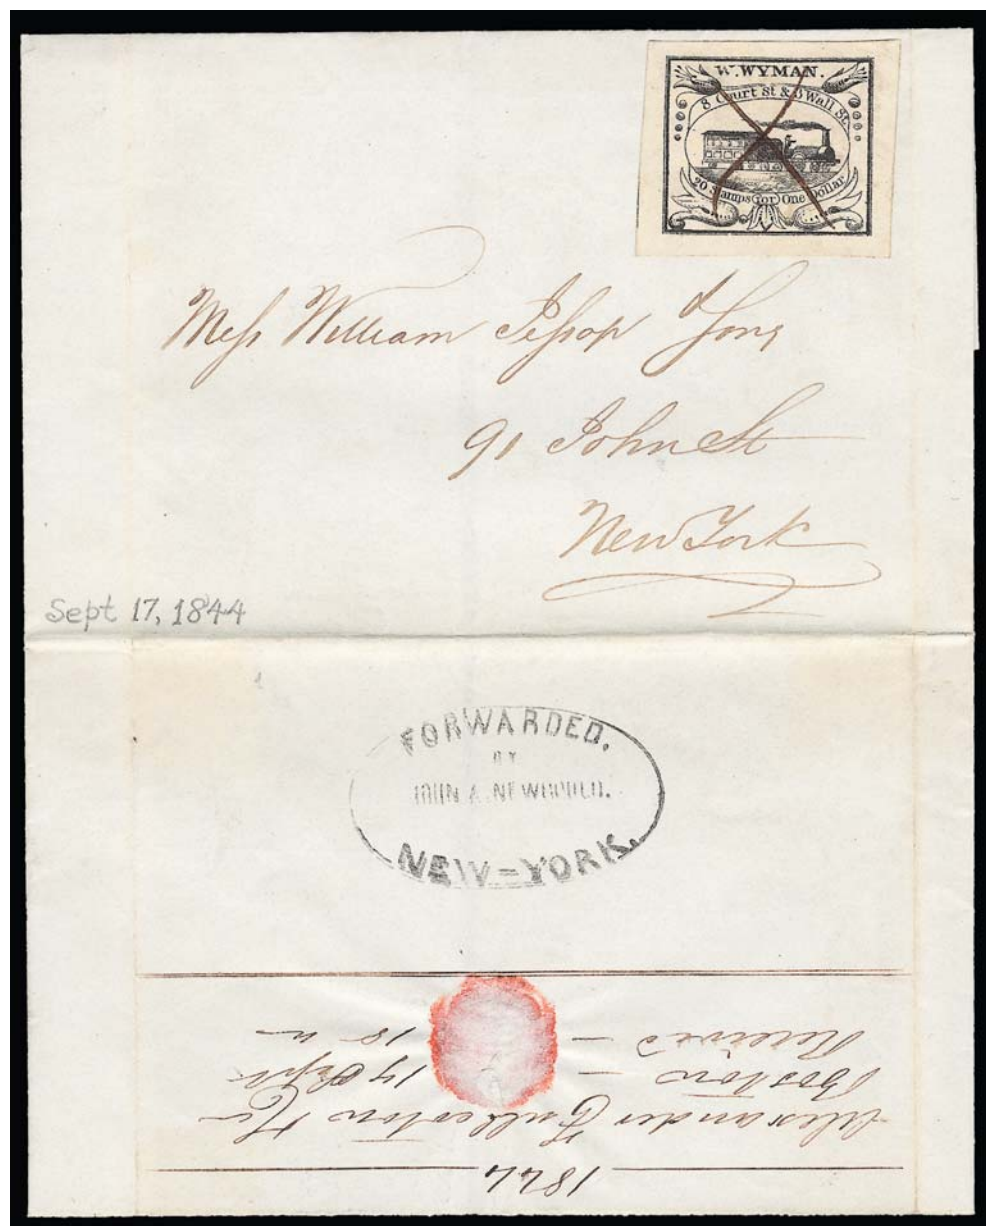 W. WYMAN.
8 Court St & 3 Wall St.
20 Stamps for One Dollar
Mess William Jessop & Sons
91 John St
New York
Sept 17, 1844
FORWARDED.
BY
JOHN A. NEWBOULD.
NEW=YORK.
1844
Alexander Fullerton & Co
Boston — 17 Sept
Received — 18 "